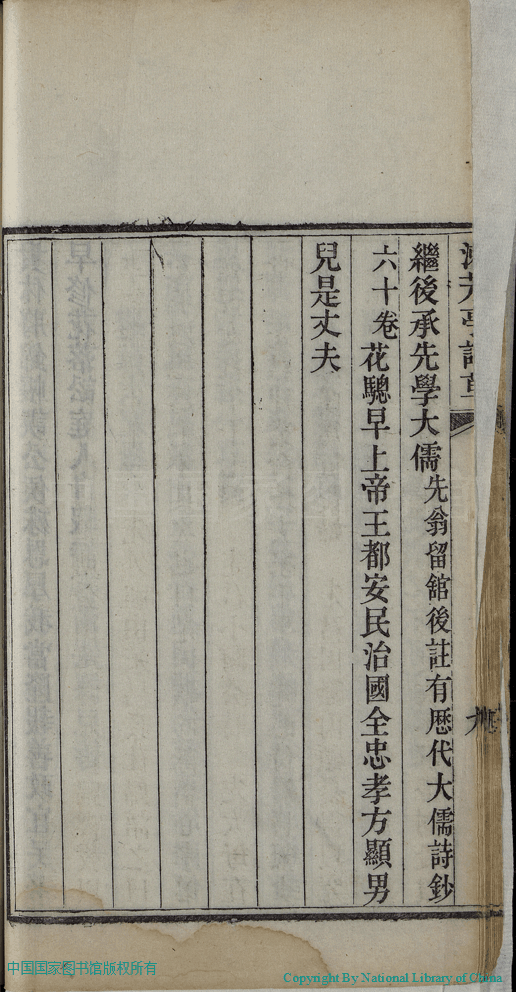 繼後承先學大儒先翁留館後註有厯代大儒詩鈔
六十卷花驄早上帝王都安民治國全忠孝方顯男
兒是丈夫
中国国家图书馆版权所有
Copyright By National Library of China